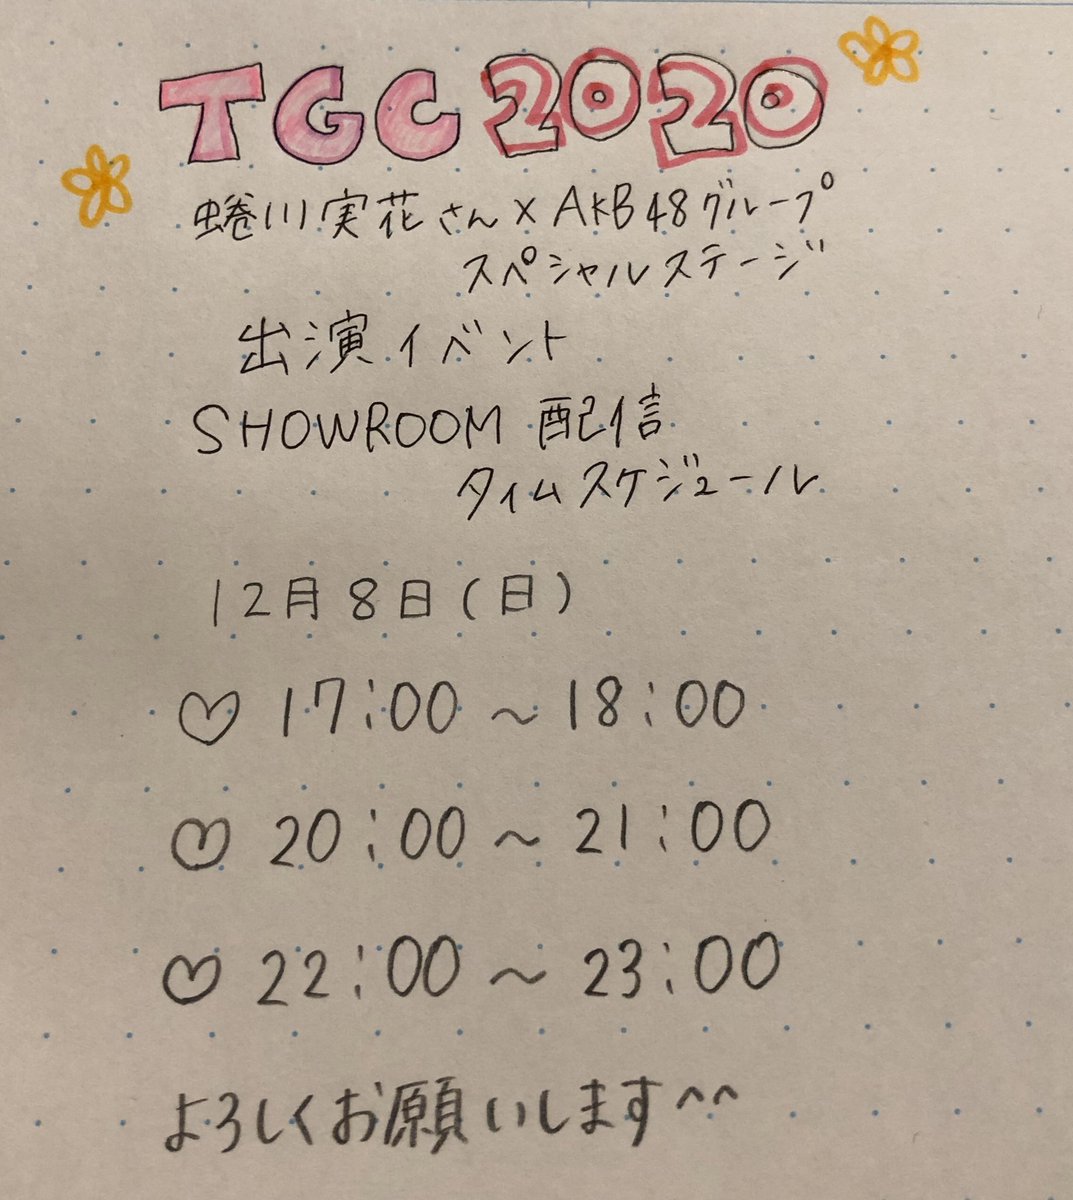 TGC 2020
蜷川実花さん×AKB48グループ
スペシャルステージ
出演イベント
SHOWROOM 配信
タイムスケジュール
12月8日(日)
♡ 17:00 ～ 18:00
♡ 20:00 ～ 21:00
♡ 22:00 ～ 23:00
よろしくお願いします^^